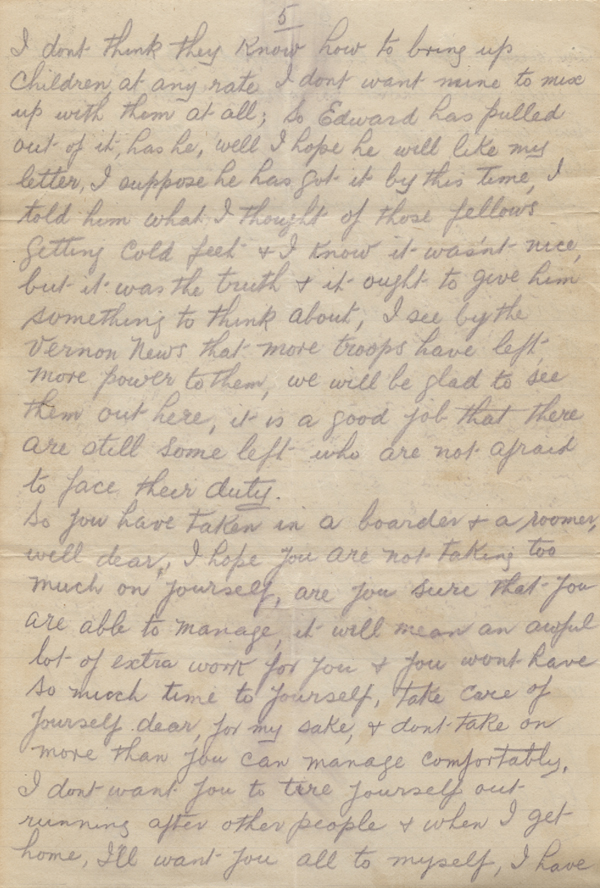 5
I dont think they know how to bring up
children, at any rate I dont want mine to mix
up with them at all; so Edward has pulled
out of it, has he, well I hope he will like my
letter, I suppose he has got it by this time, I
told him what I thought of those fellows
getting cold feet & I know it wasn't nice,
but it was the truth & it ought to give him
something to think about, I see by the
Vernon News that more troops have left,
more power to them, we will be glad to see
them out here, it is a good job that there
are still some left who are not afraid
to face their duty.
So you have taken in a boarder & a roomer,
well dear, I hope you are not taking too
much on yourself, are you sure that you
are able to manage, it will mean an awful
lot of extra work for you & you wont have
so much time to yourself, take care of
yourself dear, for my sake, & dont take on
more than you can manage comfortably,
I dont want you to tire yourself out
running after other people & when I get
home, I'll want you all to myself, I have